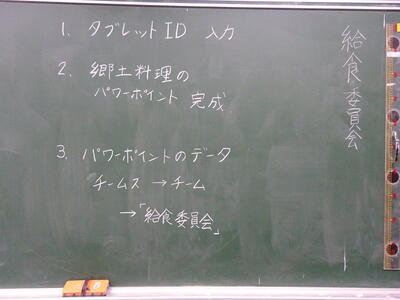 給食委員会
1. タブレットID 入力
2. 郷土料理の
パワーポイント 完成
3. パワーポイントのデータ
チームス → チーム
→「給食委員会」